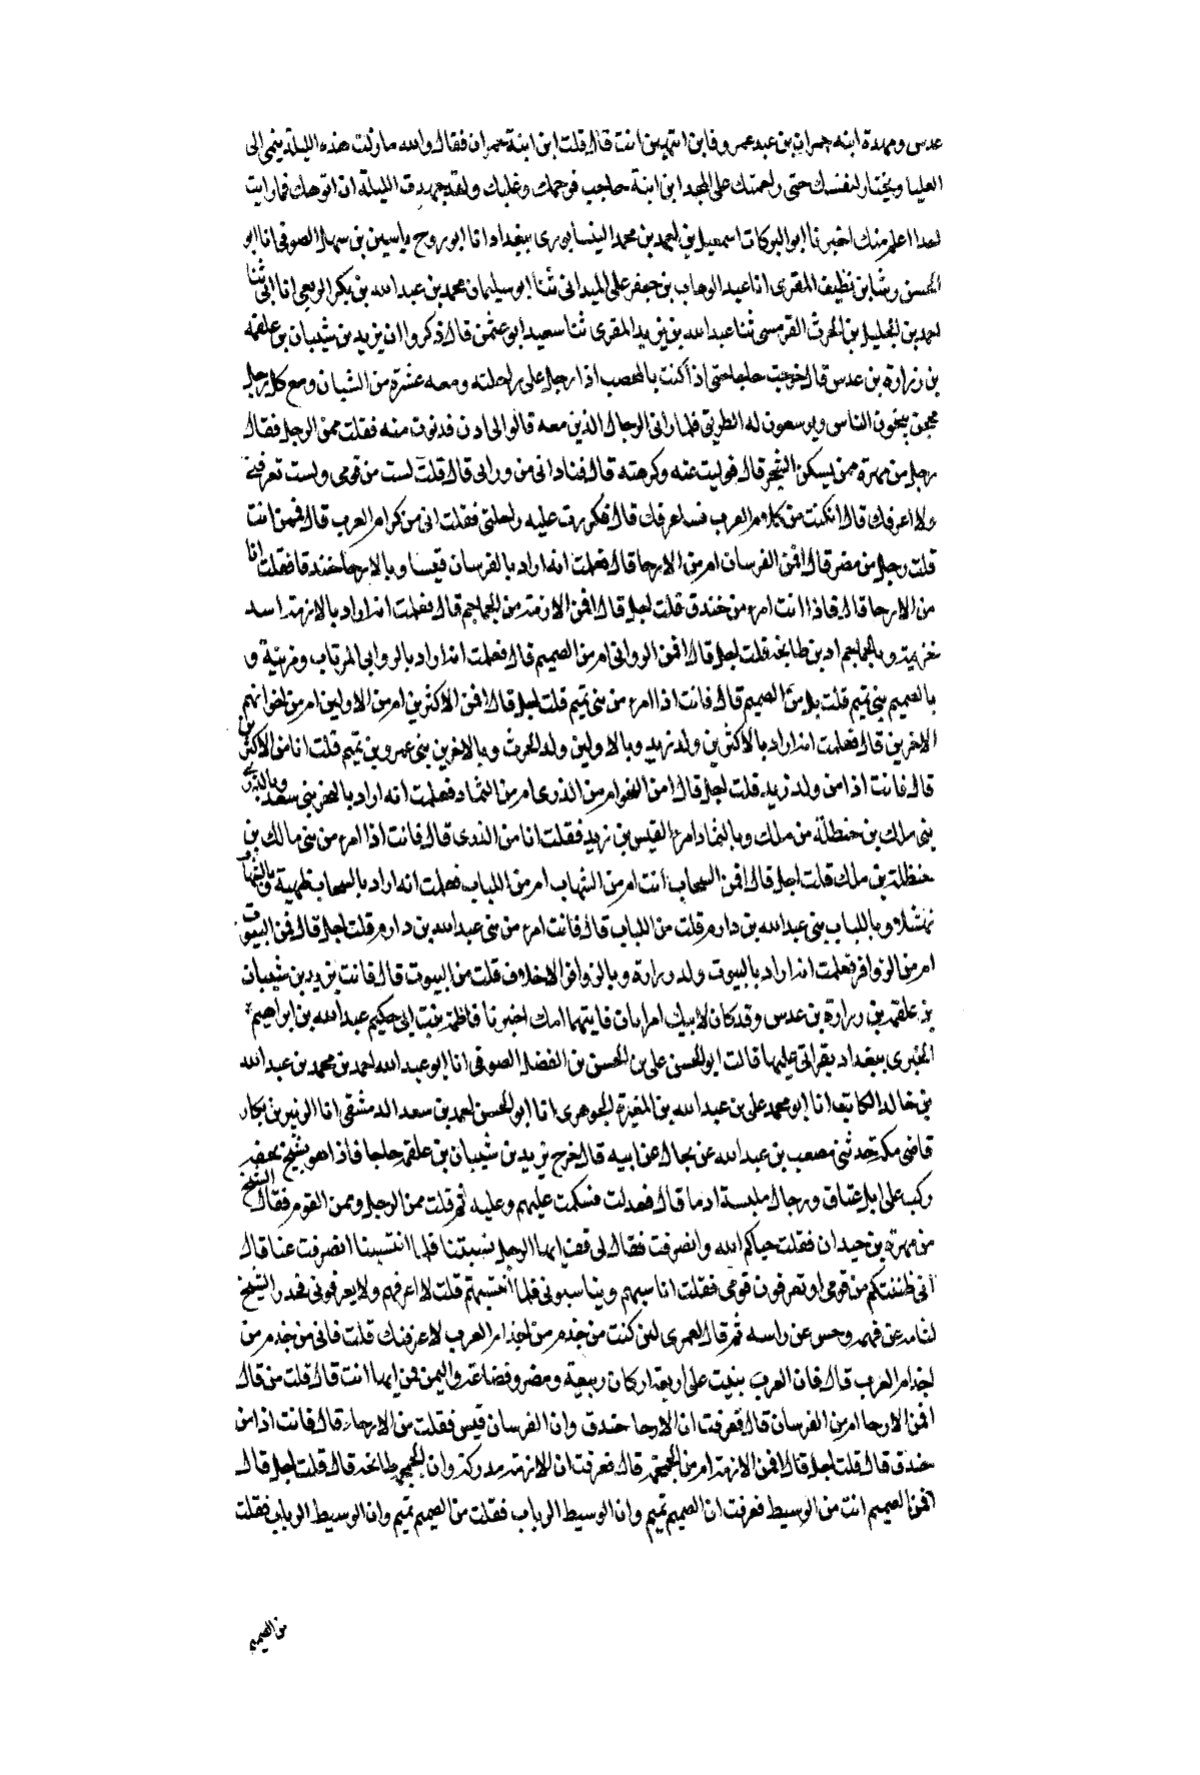 عدس ومهددة ابنه حمران بن عبد عمرو فابن ايتهن انت قال قلت ابن ابنة حمران فقال والله ما زلت هذه الليلة ينمى الى
العليا ويختار لنفسك حتى زاحمتك على المجد ابن ابنة حاجب فزحمك وغلبك ولقد جهدت الليلة ان اتوهك فما رايت
احدا اعلم منك اخبرنا ابو البركات اسمعيل بن احمد بن محمد النيسابورى ببغداد انا ابو روح ياسين بن سهل الصوفى انا ابو
الحسن رشا بن نظيف المقرى انا عبد الوهاب بن جعفر على الميدانى ثنا ابو سليمان محمد بن عبد الله بن بكر الربعى انا ابى ثنا
احمد بن الخليل بن الحرث القرمسى ثنا عبد الله بن يزيد المقرى ثنا سعيد ابو عثمن قال ذكروا ان يزيد بن شيبان بن علقمه
بن زرارة بن عدس قال خرجت حاجا حتى اذا كنت بالمحصب اذا رجل على راحلته ومعه عشرة من الشبان ومع كل رجل
محجن ينحون الناس ويوسعون له الطريق فلما رانى الرجال الذين معه قالوا لى ادن فدنوت منه فقلت ممن الرجل فقال
رجل من مهرة ممن يسكن الشحر قال فوليت عنه وكرهته قال فنادانى من ورائى قال قلت لست من قومى ولست تعرفنى
ولا اعرفك قال ان كنت من كرام العرب فساعرفك قال فكررت عليه راحلتى فقلت انى من كرام العرب قال فممن انت
قلت رجل من مضر قال افمن الفرسان ام من الارحا قال فعلمت انه اراد بالفرسان قيسا وبالارحا خندقا فقلت انا
من الارحا قال فاذا انت امرء من خندق قلت اجل قال افمن الازمة من الجماجم قال فعلمت انه اراد بالازمة اسد
خزيمة وبالجماجم اد بن طابخه قلت اجل قال افمن الروابى ام من الصميم قال فعلمت انه اراد بالروابى الرباب ومزينة و
بالصميم بنى تميم قلت بل من الصميم قال فانت اذا امرء من بنى تميم قلت اجل قال افمن الاكثرين ام من الاولين ام من اخوانهم
الاخرين قال فعلمت انه اراد بالاكثرين ولد زيد وبالاولين ولد الحرث وبالاخرين بنى عمرو بن تميم قلت انا من الاكثرين
قال فانت اذا من ولد زيد قلت اجل قال امن البحور ام من الذرى ام من الثماد فعلمت انه اراد بالبحور بنى سعد وبالذرى
بنى ملك بن حنظلة من ملك وبالثماد امرء القيس بن زيد فقلت انا من الذرى قال فانت اذا امرء من بنى مالك بن
حنظلة بن ملك قلت اجل قال افمن السحاب انت ام من الشهاب ام من اللباب فعلمت انه اراد بالسحاب طهية وبالشهاب
نهشلا وباللباب بنى عبد الله بن دارم قلت من اللباب قال فانت امرء من بنى عبد الله بن دارم قلت اجل قال فمن البيوت
ام من الزوافر فعلمت انه اراد بالبيوت ولد زرارة وبالزوافر الاخلاف قلت من البيوت قال فانت يزيد بن شيبان
بن علقمة بن زرارة بن عدس وقد كان لابيك امراتان فايتهما امك اخبرنا فاطمة بنت ابى حكيم عبد الله بن ابراهيم
الخبرى ببغداد بقراتى عليها قالت ابو الحسن على بن الحسن بن الفضل الصوفى انا ابو عبد الله احمد بن محمد بن عبد الله
بن خالد الكاتب انا ابو محمد على بن عبد الله بن المغيرة الجوهرى انا ابو الحسن احمد بن سعد الدمشقى انا الزبير بن بكار
قاضى مكة حدثنى مصعب بن عبد الله عن بجال عن ابيه قال خرج يزيد بن شيبان بن علقمة حاجا فاذا هو بشيخ يحفه
ركب على ابل عتاق ورجال ملبسة ادما قال فعدلت فسلمت عليهم وعليه ثم قلت ممن الرجل وممن القوم فقال الشيخ
من مهرة بن حيدان فقلت حياكم الله وانصرفت فقال لى قف ايها الرجل نسبتنا فلما انتسبنا انصرفت عنا قال
انى ظننتكم من قومى او تعرفون قومى فقلت اناسبهم ويناسبونى فلما انتسبتم قلت لا اعرفهم ولا يعرفونى فحدر الشيخ
لثامه عن فمه وحسر عن راسه ثم قال لعمرى لئن كنت من جذم من اجذام العرب لاعرفنك قلت فانى من جذم من
اجذام العرب قال فان العرب بنيت على اربعة اركان ربيعة ومضر وقضاعة واليمن فمن ايها انت قال قلت من قال
افمن الارحا ام من الفرسان قال فعرفت ان الارحا خندق وان الفرسان قيس فقلت من الارحاء قال فانت اذا من
خندق قال قلت اجل قال افمن الازمة ام من الجمجمة قال فعرفت ان الازمة مدركة وان الجمجمة طابخة قال قلت اجل قال
افمن الصميم انت من الوسيط فعرفت ان الصميم تميم وان الوسيط الرباب فقلت من الصميم تميم وان الوسيط الرباب فقلت
من الصميم